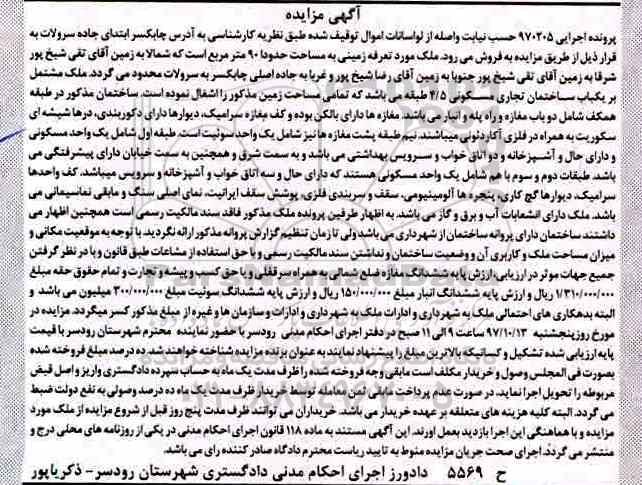 آگهی مزایده
پرونده اجرایی ۹۷۰۲۰۵ حسب نیابت واصله از لواسانات اموال توقیف شده طبق نظریه کارشناسی به آدرس چابکسر ابتدای جاده سرولات به
قرار ذیل از طریق مزایده به فروش می رود. ملک مورد تعرفه زمینی به مساحت حدودا ۹۰ متر مربع است که شمالا به زمین آقای تقی شیخ پور
شرقا به زمین آقای تقی شیخ پور جنوبا به زمین آقای رضا شیخ پور و غربا به جاده اصلی چابکسر به سرولات محدود می گردد. ملک مشتمل
بر یکباب ساختمان تجاری مسکونی ۴/۵ طبقه می باشد که تمامی مساحت زمین مذکور را اشغال نموده است. ساختمان مذکور در طبقه
همکف شامل دو باب مغازه و راه پله و انبار می باشد. مغازه ها دارای بالکن بوده و کف مغازه سرامیک، دیوارها دارای دکوربندی، درها شیشه ای
سکوریت به همراه در فلزی آکاردئونی میباشند. نیم طبقه پشت مغازه ها نیز شامل یک واحد سوئیت است. طبقه اول شامل یک واحد مسکونی
و دارای حال و آشپزخانه و دو اتاق خواب و سرویس بهداشتی می باشد و به سمت شرق و همچنین به سمت خیابان دارای پیشرفتگی می
باشد. طبقات دوم و سوم با هم شامل یک واحد مسکونی هستند که دارای حال و سه اتاق خواب و آشپزخانه و سرویس میباشد. کف واحدها
سرامیک، دیوارها گچ کاری، پنجره ها آلومینیومی، سقف و سربندی فلزی، پوشش سقف ایرانیت، نمای اصلی سنگ و مابقی نماسیمانی می
باشد. ملک دارای انشعابات آب و برق و گاز می باشد. به اظهار طرفین پرونده ملک مذکور فاقد سند مالکیت رسمی است همچنین اظهار می
داشتند ساختمان دارای پروانه ساختمان از شهرداری می باشد ولی تا زمان تنظیم گزارش پروانه مذکور ارائه نگردید. با توجه به موقعیت مکانی و
میزان مساحت ملک و کاربری آن و وضعیت ساختمان و نداشتن سند مالکیت رسمی و با حق استفاده از مشاعات طبق قانون و با در نظر گرفتن
جمیع جهات موثر در ارزیابی، ارزش پایه ششدانگ مغازه ضلع شمالی به همراه سرقفلی و یا حق کسب و پیشه و تجارت و تمام حقوق حقه مبلغ
۱/۳۱۰/۰۰۰/۰۰۰ ریال و ارزش پایه ششدانگ انبار مبلغ ۱۵۰/۰۰۰/۰۰۰ ریال و ارزش پایه ششدانگ سوئیت مبلغ ۳۰۰/۰۰۰/۰۰۰ میلیون می باشد و
البته بدهکاری های احتمالی ملک به شهرداری و ادارات ملک به شهرداری و ادارات و سازمان ها و غیره از مبلغ مذکور کسر میگردد. مزایده در
مورخ روز پنجشنبه ۹۷/۱۰/۱۳ ساعت ۹ الی ۱۱ صبح در دفتر اجرای احکام مدنی رودسر با حضور نماینده محترم شهرستان رودسر با قیمت
پایه ارزیابی شده تشکیل و کسانیکه بالاترین مبلغ را پیشنهاد نمایند به عنوان برنده مزایده شناخته خواهند شد. ده درصد مبلغ فروخته شده
بصورت فی المجلس وصول و خریدار مکلف است مابقی وجه فروخته شده را ظرف مدت یک ماه به حساب سپرده دادگستری واریز و اصل فیض
مربوطه را تحویل اجرا نماید. در صورت عدم پرداخت مابقی ثمن معامله توسط خریدار ظرف مدت یک ماه ده درصد وصولی به نفع دولت ضبط
می گردد. البته کلیه هزینه های متعلقه بر عهده خریدار می باشد. خریداران می توانند ظرف مدت پنج روز قبل از شروع مزایده از ملک مورد
مزایده و با هماهنگی این اجرا بازدید بعمل آورند. این آگهی مستند به ماده ۱۱۸ قانون اجرای احکام مدنی در یکی از روزنامه های محلی درج و
منتشر می گردد. اجرای صحت جریان مزایده منوط به تایید ریاست محترم دادگاه صادر کننده رای می باشد.
ح ۵۵۶۹ دادورز اجرای احکام مدنی دادگستری شهرستان رودسر- ذکریاپور